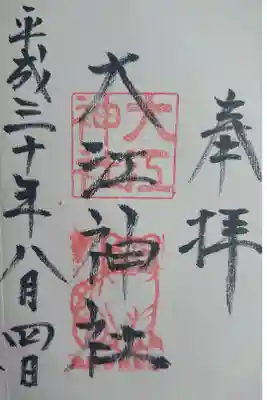 奉拝
大江神社
大江
神社
平成三十年八月四日